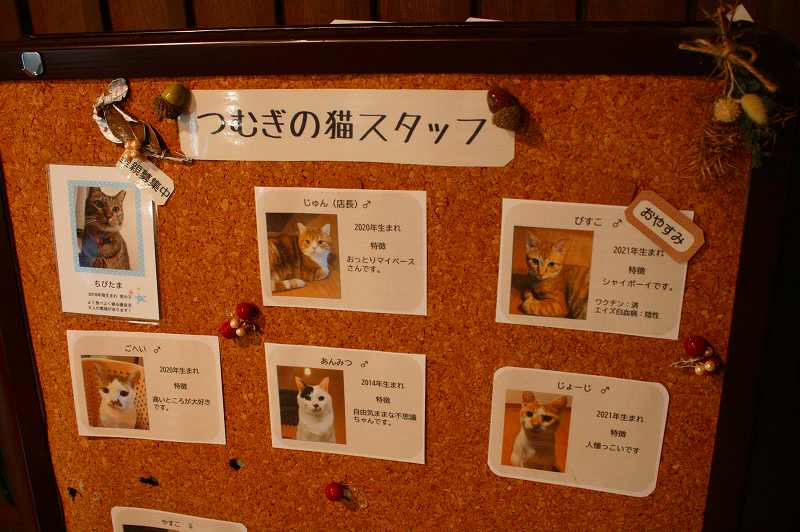 つむぎの猫スタッフ
里親募集中
ちびたま
大人の素様があります!
じゅん（店長）♂
2020年生まれ
特徴
おっとりマイペース
さんです。
びすこ ♂
おやすみ
2021年生まれ
特徴
シャイボーイです。
ワクチン：済
エイズ白血病：陰性
ごへい ♂
2020年生まれ
特徴
高いところが大好き
です。
あんみつ ♂
2014年生まれ
特徴
自由気ままな不思議
ちゃんです。
じょーじ ♂
2021年生まれ
特徴
人懐っこいです
やすこ